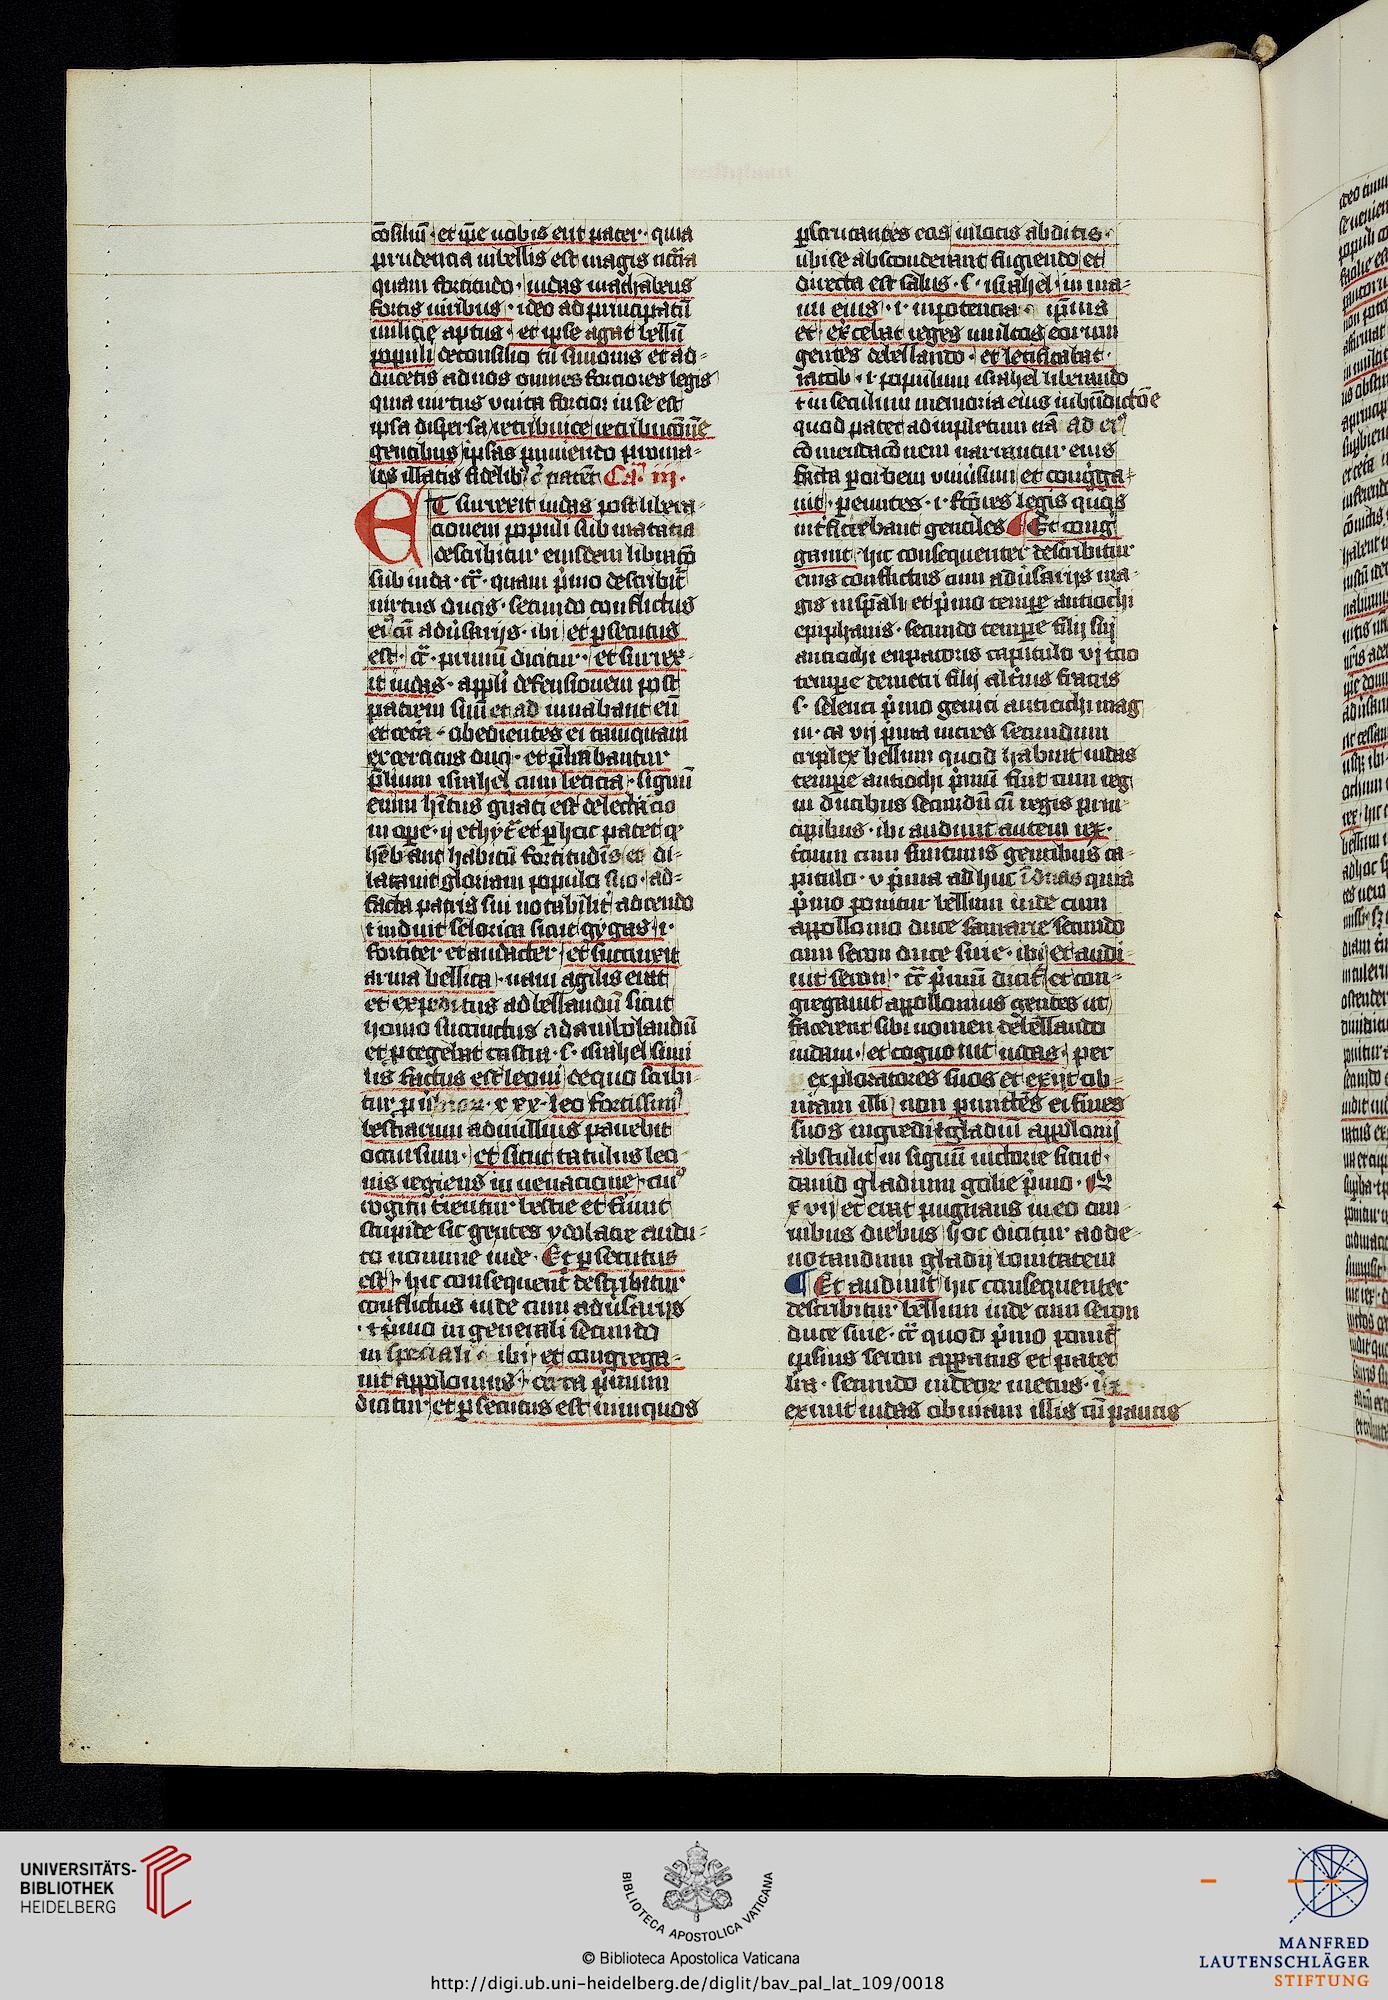 cōsiliū et ip̄e uobis erit pater · quia
prudencia in bellis est magis nc̄cria
quam fortitudo · iudas machabeus
fortis uiribus · ideo ad principatū
milicie aptus · et ipse agat bellū
populi de consilio tn̄ simonis et ad-
ducetis ad uos omnes forciores legis
quia uirtus vnita forcior in se est
ipsa dispersa retribuite retribucōnē
gentibus ipsas puniendo pro ma-
lis illatis fidelib9 c̄ patet Ca. iij.
ET surrexit iudas post libera-
cionem populi sub matatia
describitur eiusdem libracō
sub iuda · c̄c̄ · quam p̄mo describit̄
uirtus ducis · secundo conflictus
ei9 cū adūsarijs · ibi et persecutus
est · c̄c̄ · primū dicitur · et surrex-
it iudas · appl̄i defensionem post
patrem suū et adiuuabant eū
et cetā · obedientes ei tamquam
exercitus duci · et p̄liabantur
p̄lium israhel cum leticia · signū
enim hītus gn̄ati est delectacio
in oper̄e · ij ethyc̄ et per hoc patet q̄
hēbant habitū fortitudīs et di-
latauit gloriam populo suo · ad-
facta patris sui notabilit̄ adendo
t induit se lorica sicut gygas · i ·
fortiter et audacter et succinxit
arma bellica · nam agilis erat
et expeditus ad bellandū sicut
homo succinctus ad ambulandū
et p̄tegebat castra · s · israhel simi
lis factus est leoni de quo scribi-
tur puerbior · xxx · leo fortissim9
bestiarum ad nullius pauebit
occursum · et sicut catulus leo-
nis rugiens in uenacione · cui9
rugitu tirentur bestie et fiunt
stupide sic gentes ydolatrie audi-
to nomine iude · Et persecutus
est · hic consequent̄ describitur
conflictus iude cum adūsarijs
· t p̄mo in generali secundo
in speciali · ibi · et congrega-
uit appolonius · circa primum
dicitur et persecutus est iniquos
perscrutantes eos in locis abditis ·
ubi se absconderant fugiendo et
directa est salus · s · israhel in ma-
nu eius · i · in potencia ipius
et exacerbat reges multos eorum
gentes debellando · et letificabat ·
iacob · i · populum israhel liberando
t in seculum memoria eius in bn̄dictōe
quod patet adimpletum nā ad ei9
cōmendacōnem narrantur eius
facta per orbem vniūsum et cong̃ga-
uit · pereuntes · i · fcōres legis quos
interficiebant gentiles ¶ Et cong̃
gauit hic consequenter describitur
eius conflictus cum adūsarijs ma-
gis in sp̄ali et p̄mo tempore antiochi
epiphanis · secundo tempore filij sui
antiochi eupatoris capitulo vj tcio
tempore demetri filij alt̄ius fratris
s · seleuci p̄mo geniti antiochi mag
ni · ca vij prima in tres secundum
triplex bellum quod habuit iudas
tempore antiochi primū fuit cum reg
ni ducibus secundū cū regis prin-
cipibus · ibi audiuit autem rex ·
tcium cum finitimis gentibus ca-
pitulo · v prima adhuc ī duas quia
p̄mo ponitur bellum iude cum
appollonio duce samarie secundo
cum seron duce sirie · ibi et audi-
uit seron · c̄c̄ primū dicit̄ et con-
gregauit appollonius gentes ut
faceret sibi nomen debellando
iudam · et cognouit iudas per
exploratores suos et exijt ob-
uiam illi
suos
gladiū appolonij
abstulit in signū uictorie sicut ·
dauid gladium golie p̄mo · R
xvij et erat pugnans in eo om-
nibus diebus hoc dicitur ad de-
notandum gladij bonitatem
¶ Et audiuit hic consequenter
describitur bellum iude cum seron
duce sirie · c̄c̄ quod p̄mo ponit̄
ipsius seron apparatus et patet
lr̄a · secundo iudeor metus · ibi
exiuit iudas obuiam illis cū paucis
UNIVERSITÄTS-
BIBLIOTHEK
HEIDELBERG
BIBLIOTECA APOSTOLICA VATICANA
© Biblioteca Apostolica Vaticana
http://digi.ub.uni-heidelberg.de/diglit/bav_pal_lat_109/0018
MANFRED
LAUTENSCHLÄGER
STIFTUNG